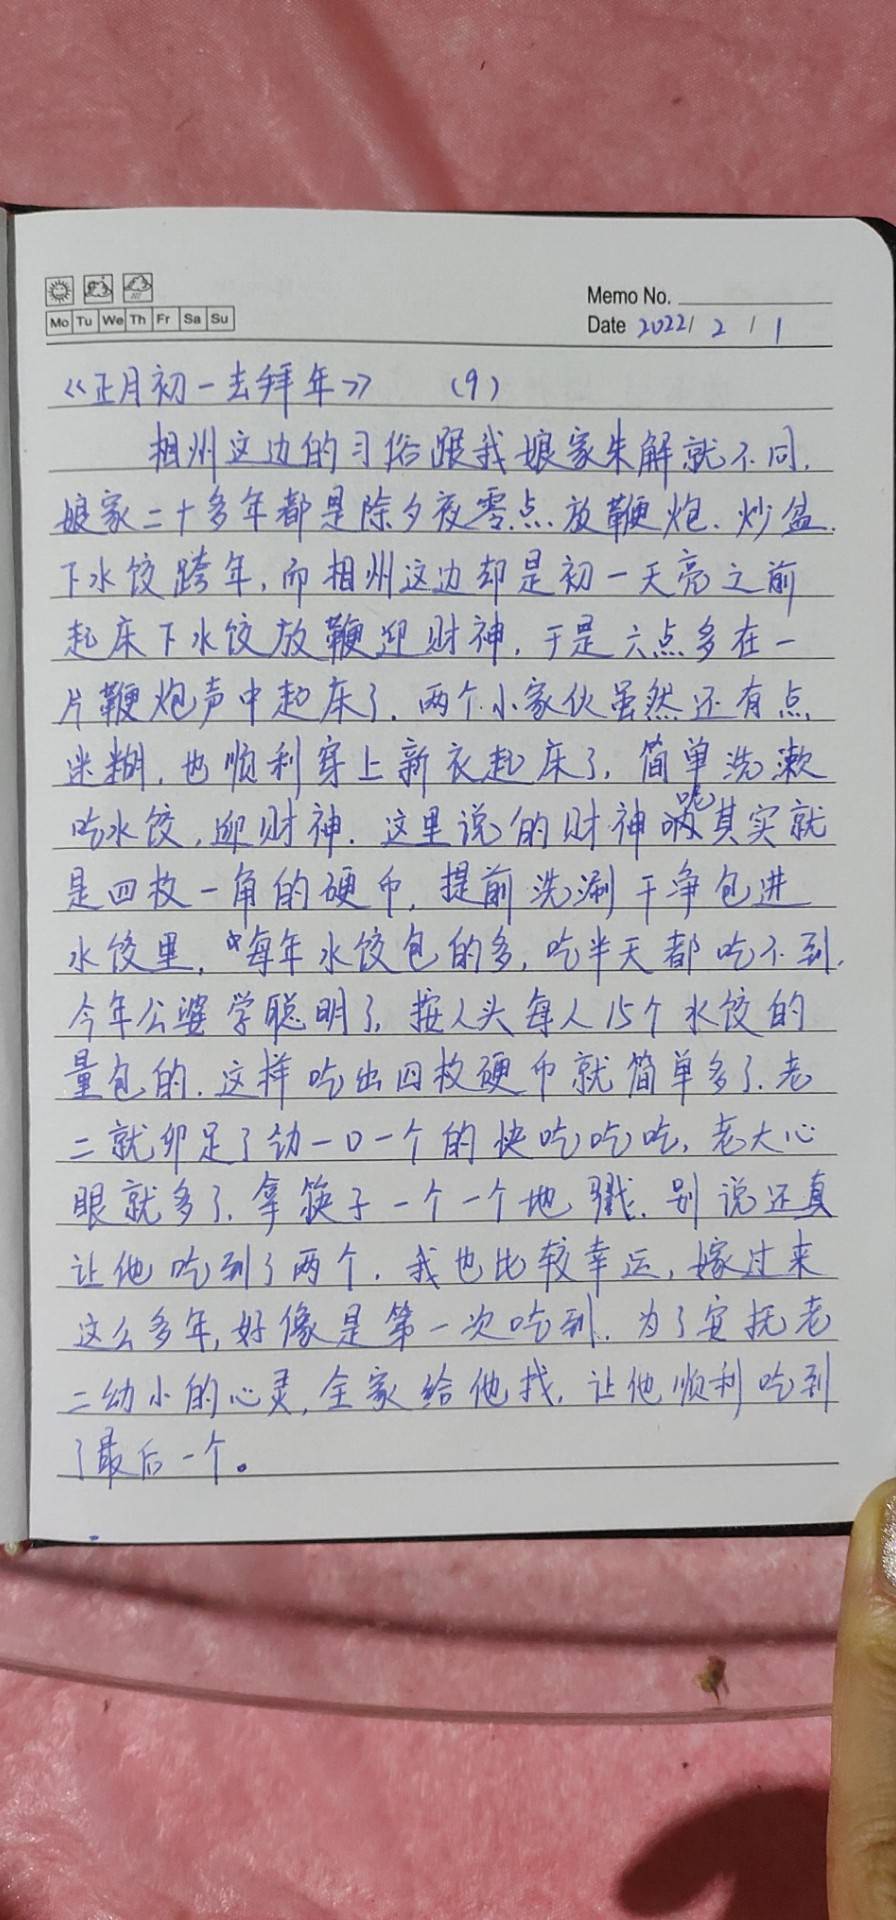 Mo Tu We Th Fr Sa Su
Memo No.
Date 2022/ 2 / 1
《正月初一去拜年》 (9)
相州这边的习俗跟我娘家朱解就不同,
娘家二十多年都是除夕夜零点放鞭炮、炒盆、
下水饺跨年,而相州这边却是初一天亮之前
起床下水饺放鞭迎财神,于是六点多在一
片鞭炮声中起床了,两个小家伙虽然还有点
迷糊,也顺利穿上新衣起床了,简单洗漱
吃水饺,迎财神.这里说的财神呢其实就
是四枚一角的硬币,提前洗涮干净包进
水饺里,每年水饺包的多,吃半天都吃不到,
今年公婆学聪明了,按人头每人15个水饺的
量包的.这样吃出四枚硬币就简单多了.老
二就卯足了劲一口一个的快吃吃吃,老大心
眼就多了,拿筷子一个一个地戳.别说还真
让他吃到了两个.我也比较幸运,嫁过来
这么多年,好像是第一次吃到.为了安抚老
二幼小的心灵,全家给他找,让他顺利吃到
了最后一个。